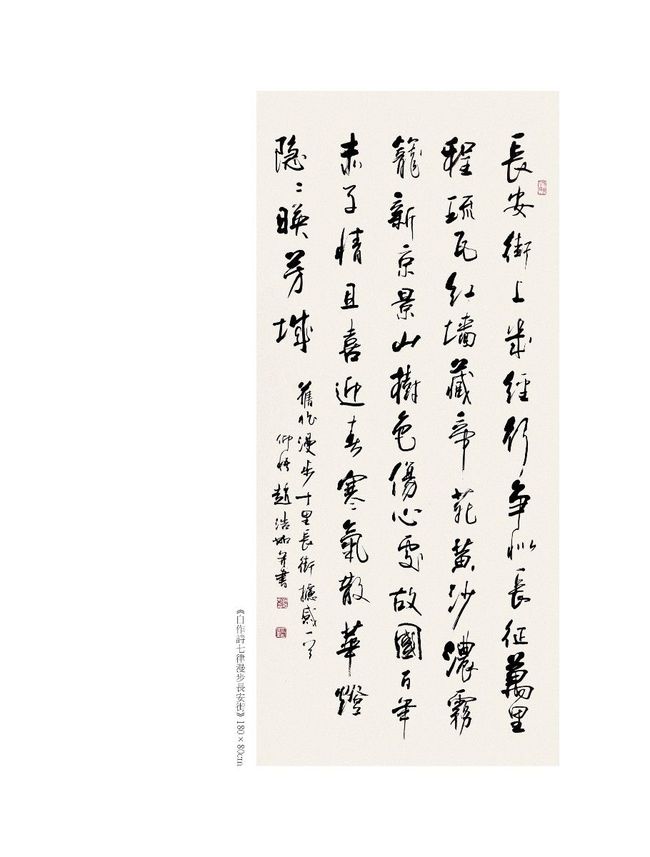 長安街上幾經行争似長征萬里
程琉瓦红墙藏帝苑黄沙濃霧
籠新京景山樹色傷心處故國百年
赤子情且喜迎春寒氣散華燈
隐〻暎芳城
舊作漫步十里長街攄感一首
趙浩如并書
《自作詩七律漫步長安街》180×80cm